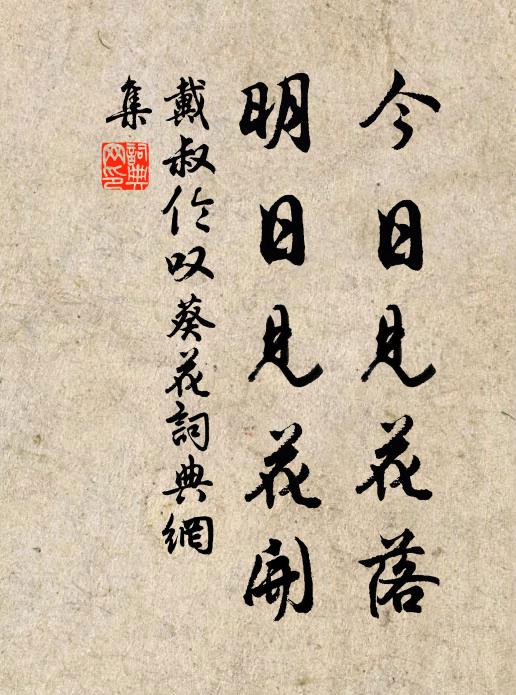 今日见花落
明日见花开
戴叔伦叹葵花詞典網
集
詞典網印